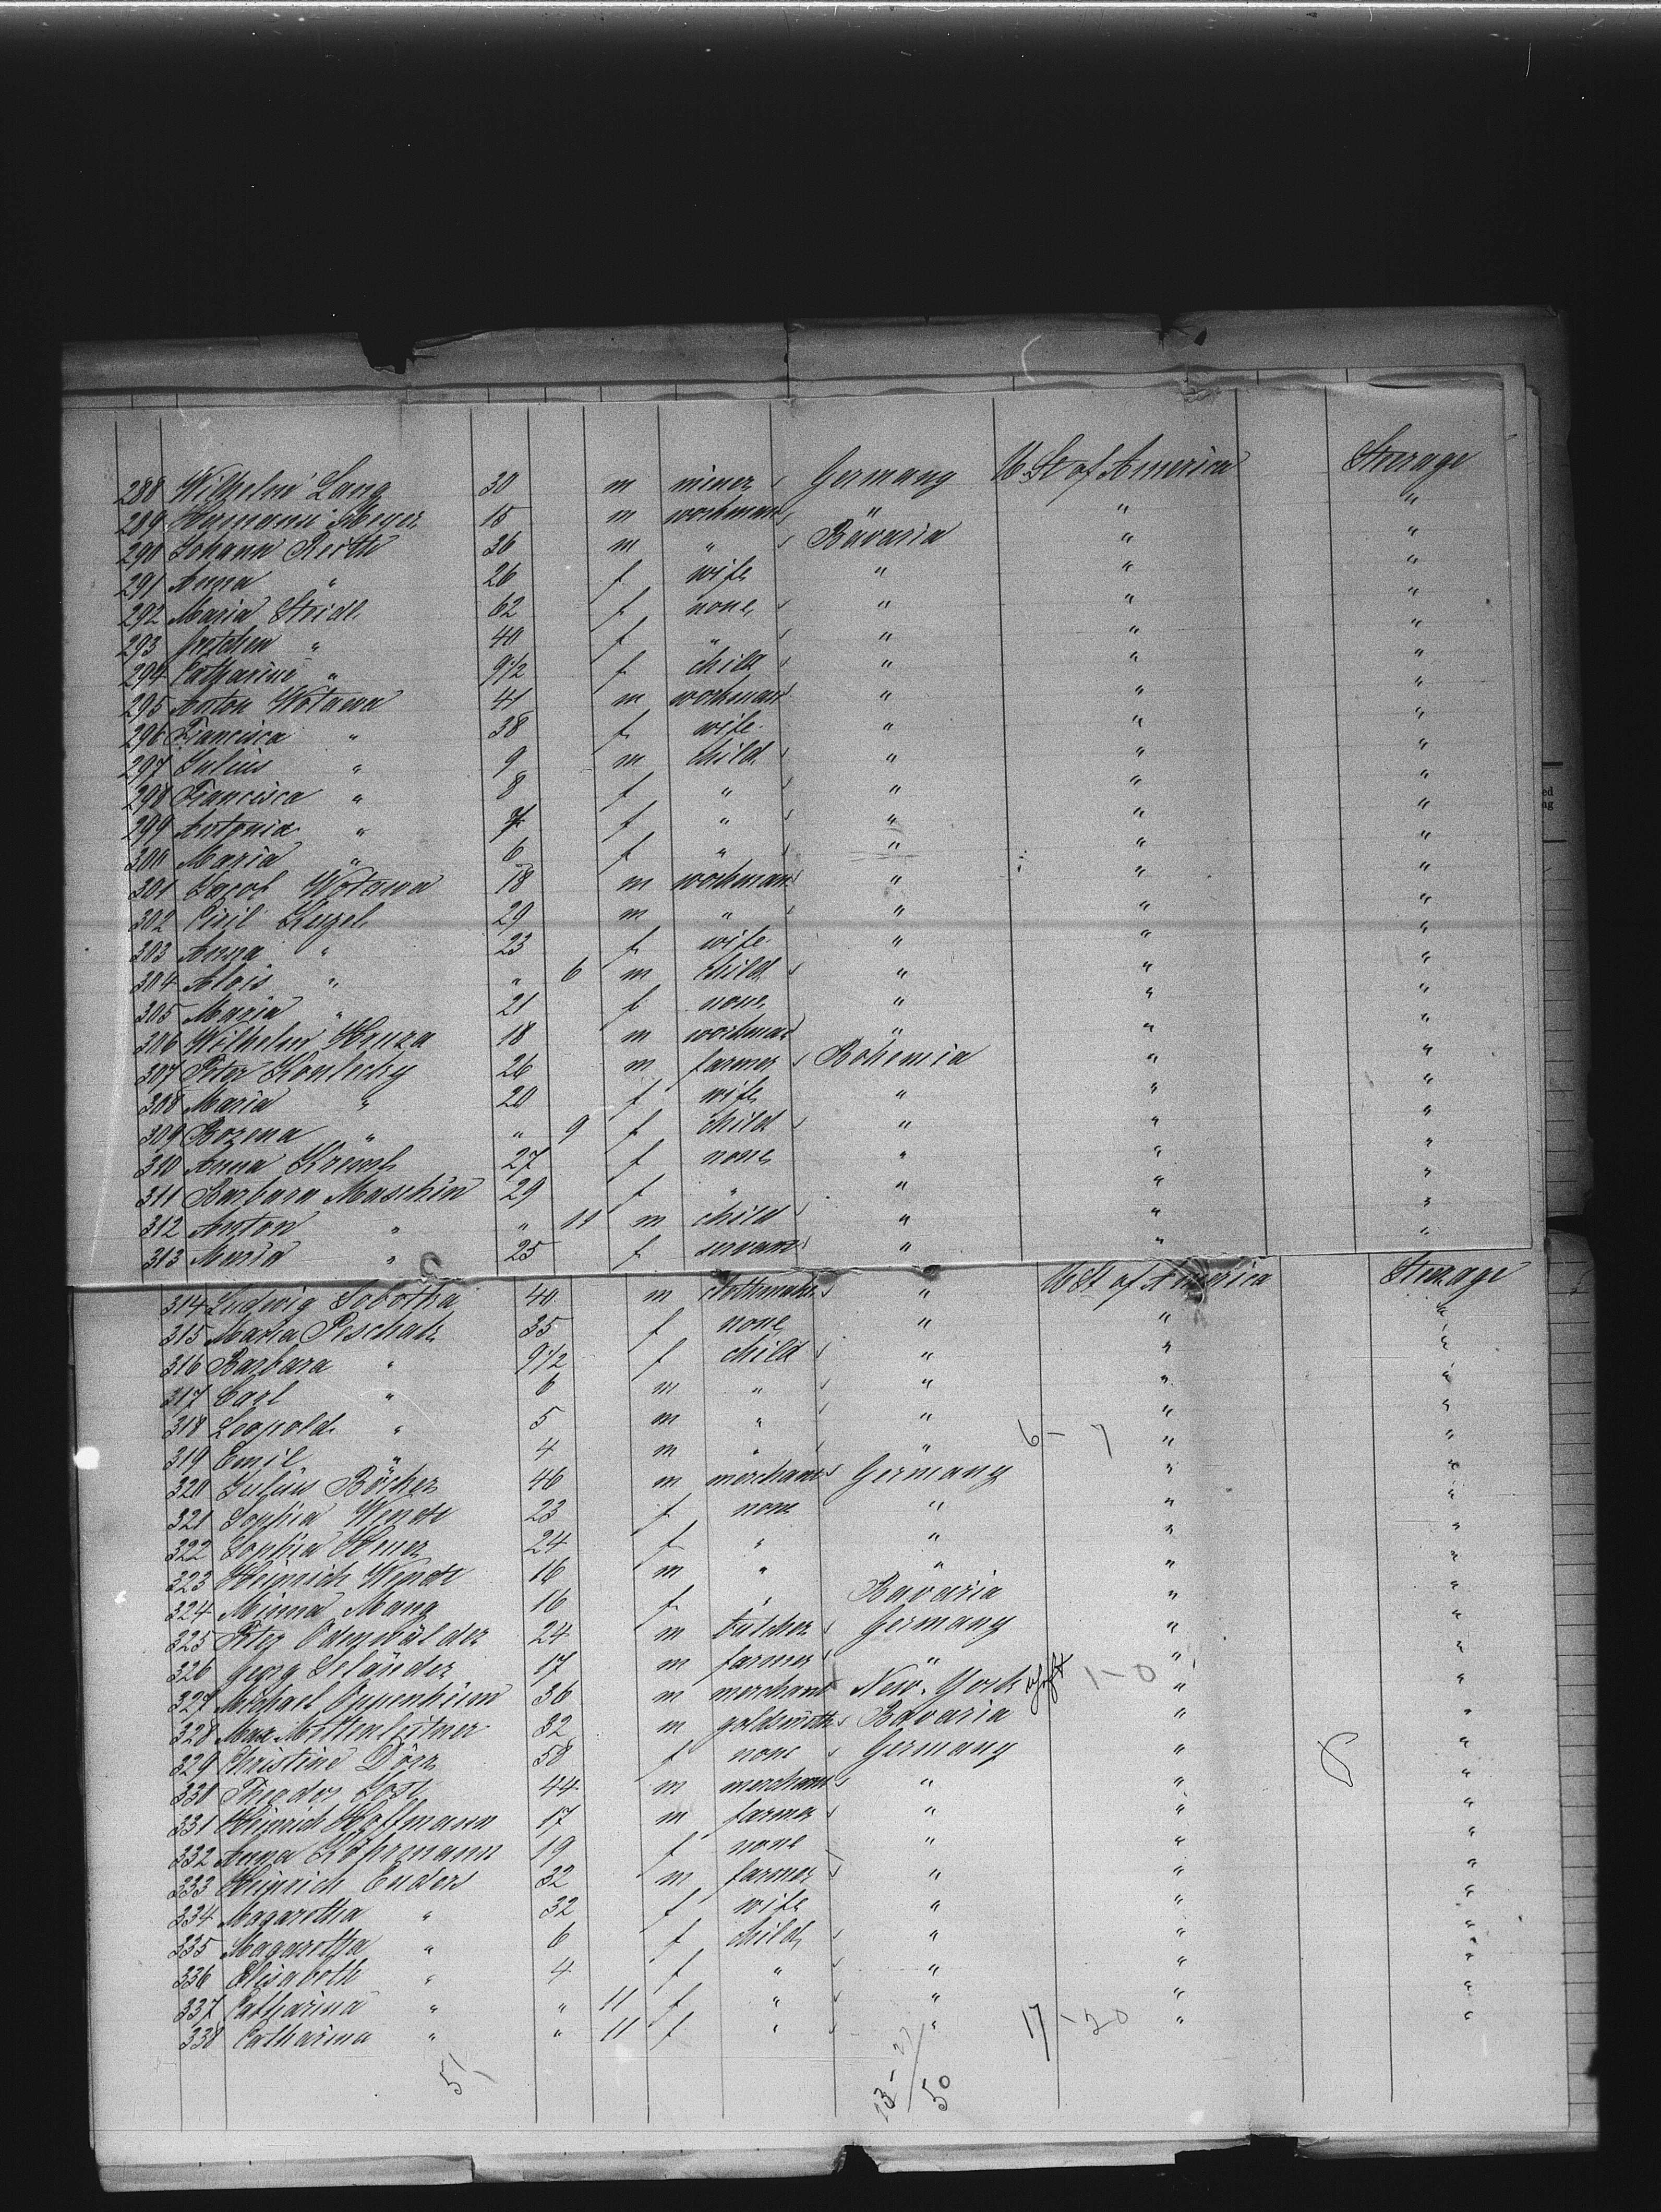 288 Wilhelm Lang 30 m miner Germany U. St of America Sterage
289 Hermann Meyer 15 m workman " " "
290 Johann Reith 36 m " Bavaria " "
291 Anna " 26 f wife " " "
292 Maria Stridl 62 f none " " "
293 Gretchen " 40 f " " " "
294 Catharine " 9 1/2 f child " " "
295 Anton Wotawa 41 m workman " " "
296 Francisca " 38 f wife " " "
297 Julius " 9 m child " " "
298 Francisca " 8 f " " " "
299 Antonia " 7 f " " " "
300 Maria " 6 f " " " "
301 Jacob Wotawa 18 m workman " " "
302 Ciril Kuzel 29 m " " " "
303 Anna " 23 f wife " " "
304 Alois " " 6 m child " " "
305 Maria " 21 f none " " "
306 Wilhelm 18 m workman " " "
307 Peter 26 m farmer Bohemia " "
308 Maria " 20 f wife " " "
309 Bozena " " 9 f child " " "
310 Anna 27 f none " " "
311 Barbara Maschin 29 f " " " "
312 Anton " " 11 m child " " "
313 Maria " 25 f servant " " "
314 Ludwig Sobotha 40 m " U St of America Sterage
315 Maria Peschak 35 f none " " "
316 Barbara " 9 1/2 f child " " "
317 Carl " 6 m " " " "
318 Leopold " 5 m " " " "
319 Emil " 4 m " " 6 - 7 " "
320 Julius Böcher 46 m merchant Germany " "
321 Sophia Wendt 23 f none " " "
322 Sophia 24 f " " " "
323 Heinrich Wendt 16 m " " " "
324 Minna Mang 16 f " Bavaria " "
325 Peter Odenwälder 24 m butcher Germany " "
326 Georg Seländer 17 m farmer " " "
327 Michael Oppenheim 36 m merchant New. York 1 - 0 " "
328 Max Mottenleitner 32 m goldsmith Bavaria " "
329 Christine Dörr 58 f none Germany " "
330 Theodor Jost 44 m merchant " " "
331 Heinrich Hoffmann 17 m farmer " " "
332 Anna 19 f none " " "
333 Heinrich Enders 32 m farmer " " "
334 Magaretha " 32 f wife " " "
335 Magaretha " 6 f child " " "
336 Elisabeth " 4 f " " " "
337 Catharina " " 11 f " " " "
338 Catharina " " 11 f " " 17 - 20 " "
51 50